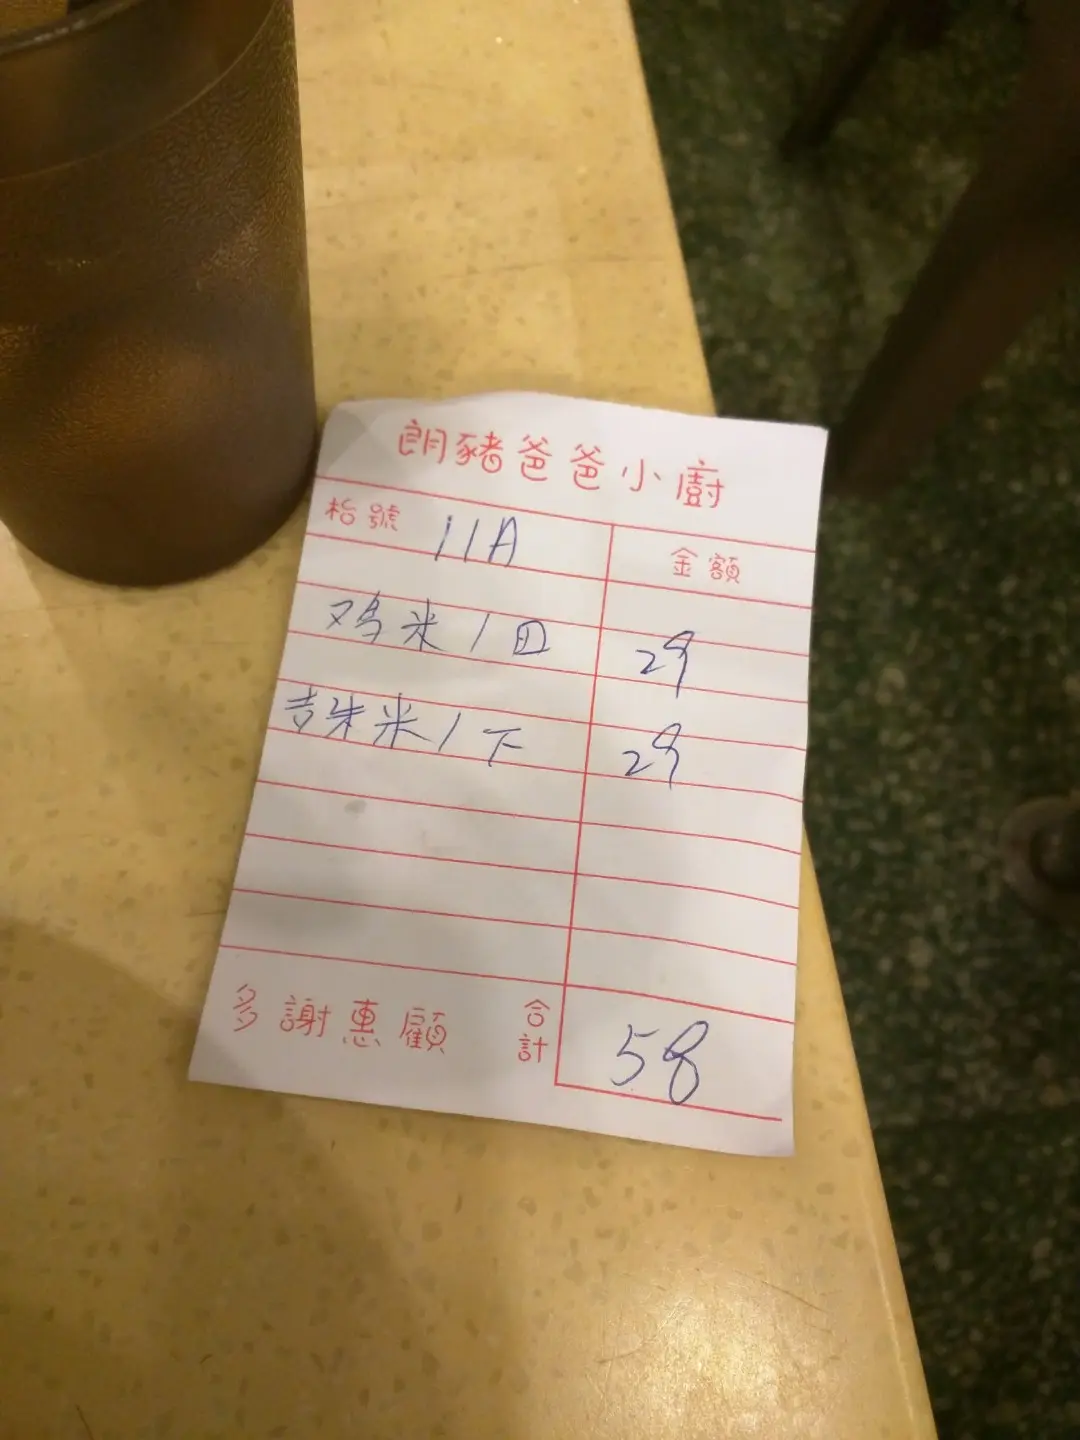 朗豬爸爸小廚
枱號 11A 金額
鸡米 1 29
吉朱米 1 下 29
多謝惠顧 合計 58